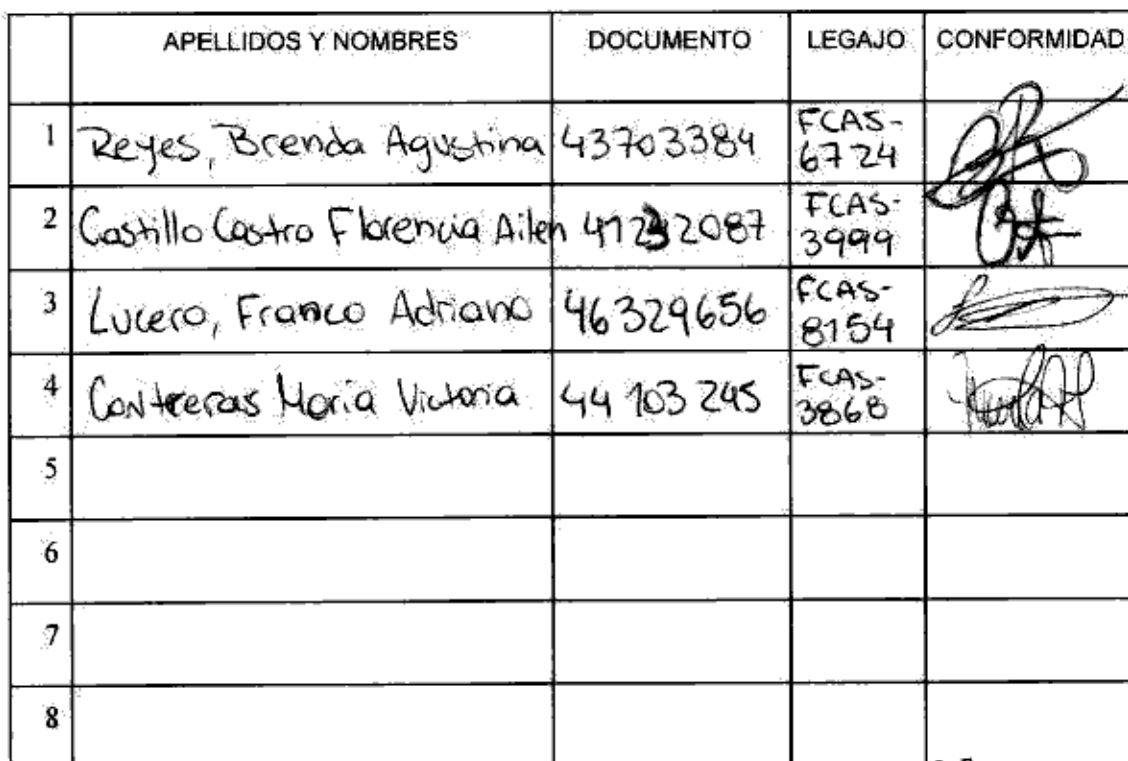 APELLIDOS Y NOMBRES DOCUMENTO LEGAJO CONFORMIDAD
1 Reyes, Brenda Agustina 43703384 FCAS-
6724
2 Castillo Castro Florencia Ailen 41232087 FCAS-
3999
3 Lucero, Franco Adriano 46329656 FCAS-
8154
4 Contreras Maria Victoria 44 103 245 FCAS-
3868
5
6
7
8